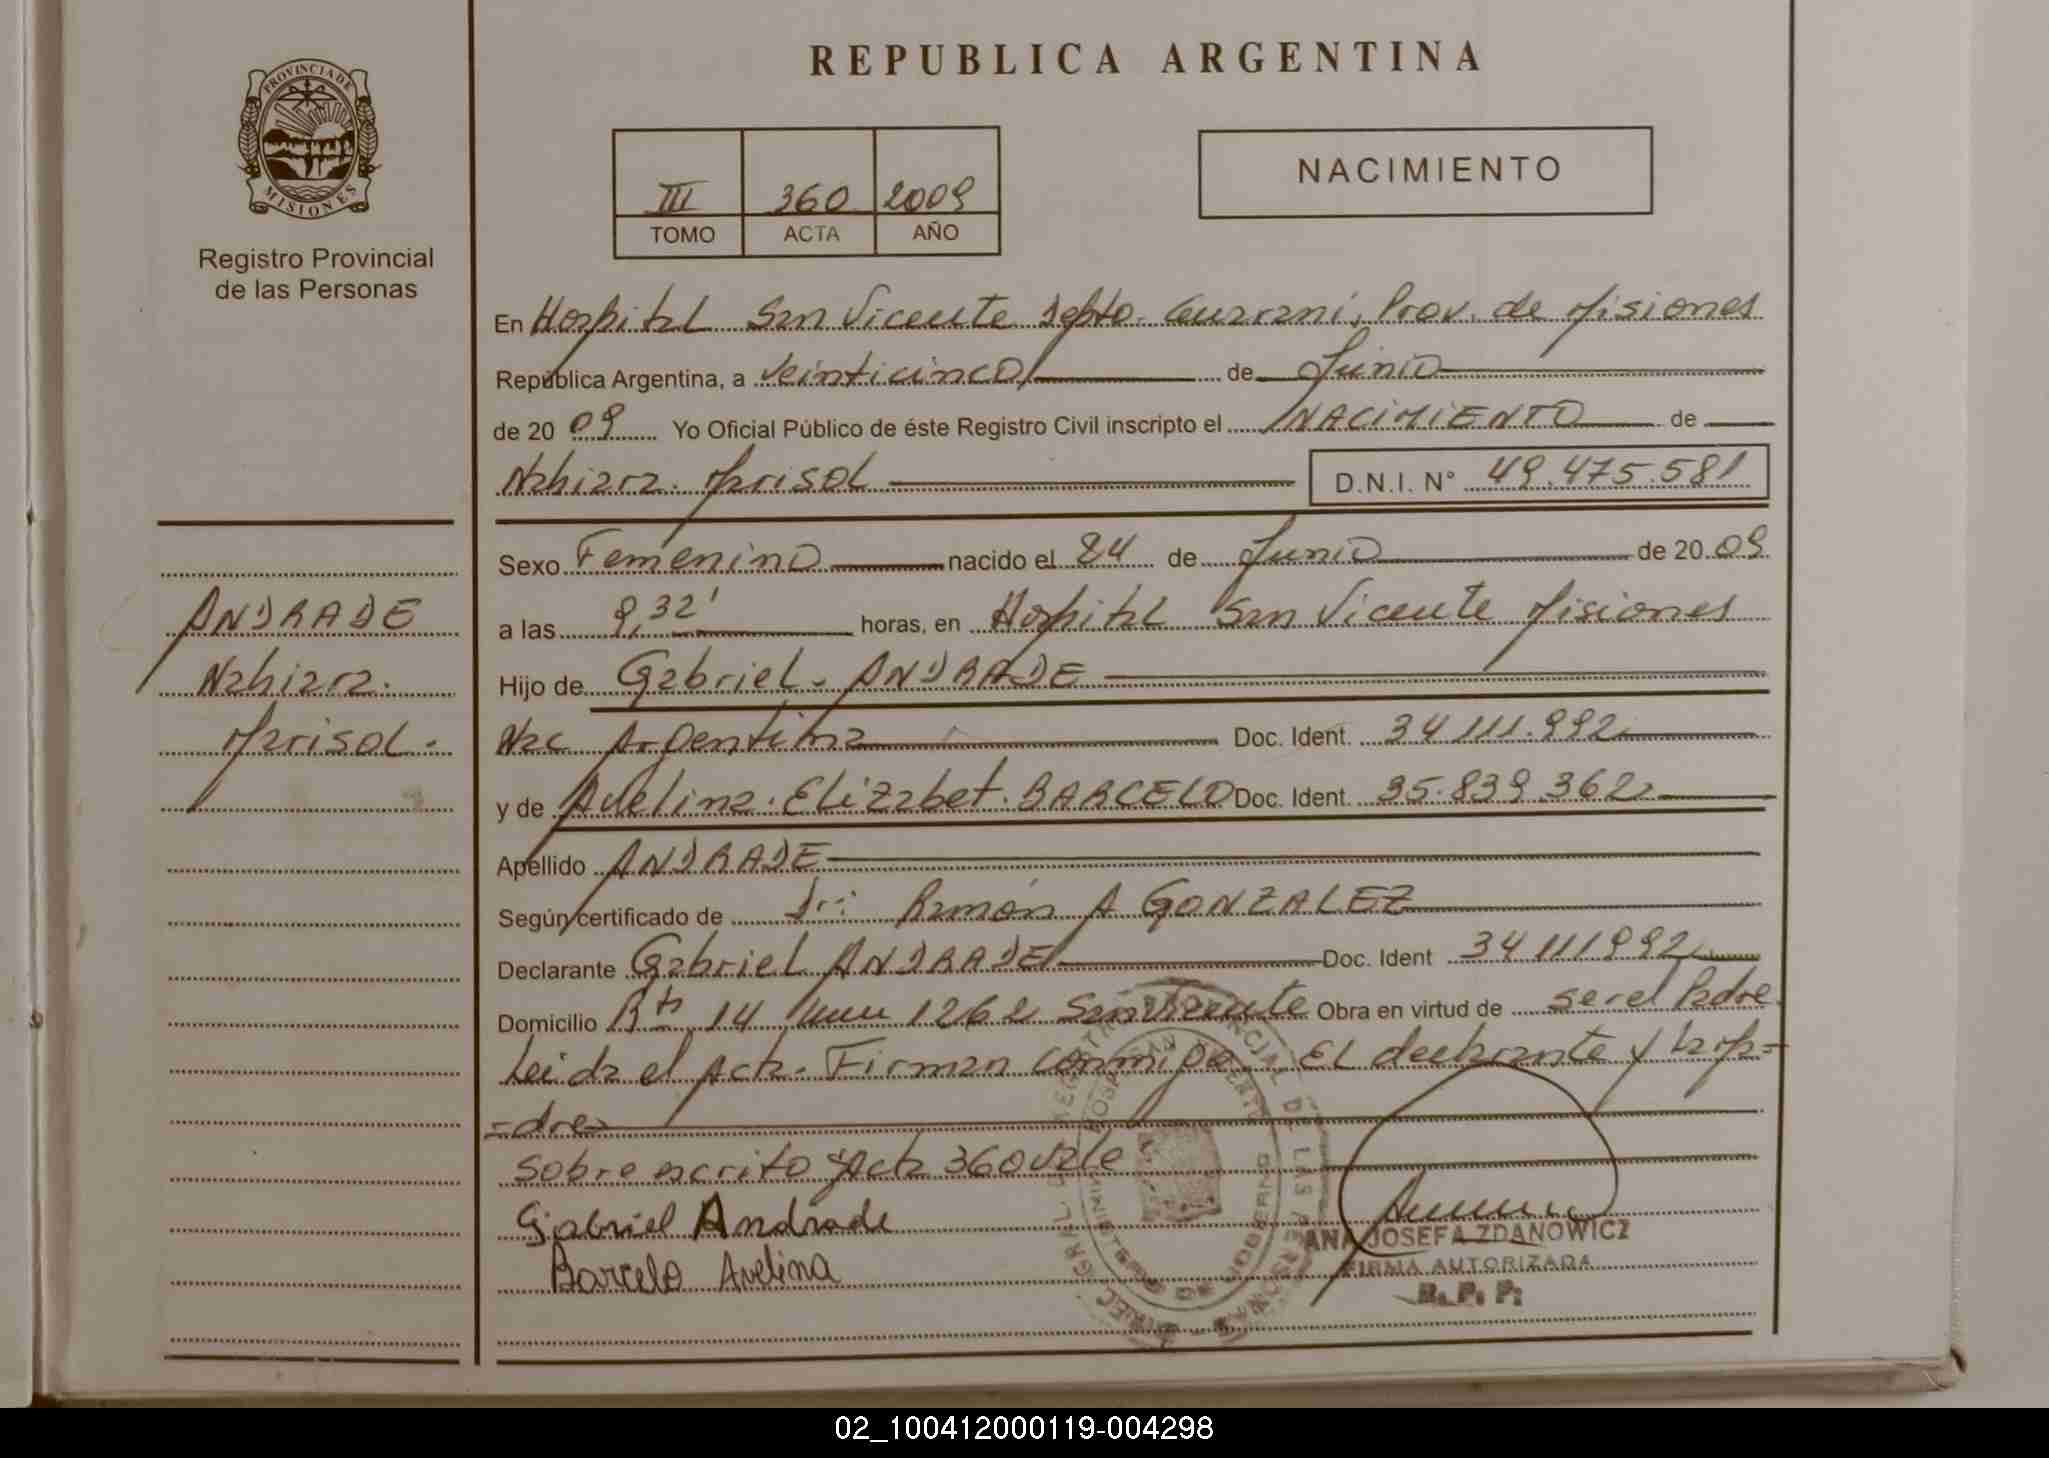 REPUBLICA ARGENTINA
PROVINCIA DE MISIONES
Registro Provincial
de las Personas
III 360 2009
TOMO ACTA AÑO
NACIMIENTO
En Hospital San Vicente Dpto. Guarani, Prov. de Misiones
República Argentina, a veinticinco de Junio
de 20 09 Yo Oficial Público de éste Registro Civil inscripto el NACIMIENTO de
Nahiara. Marisol D.N.I. N° 49.475.581
Sexo Femenino nacido el 24 de Junio de 20 09
a las 9,32' horas, en Hospital San Vicente Misiones
Hijo de Gabriel. ANDRADE
Nac Argentina Doc. Ident. 34 111.992
y de Avelina. Elizabet. BARCELO Doc. Ident. 35.839.362
Apellido ANDRADE
Según certificado de Dr: Ramón A GONZALEZ
Declarante Gabriel ANDRADE Doc. Ident 34 111992
Domicilio Rta 14 km 1262 San Vicente Obra en virtud de ser el Padre.
Leida el Acta. Firman conmigo. EL declarante y la Ma=
=dre
Sobre escrito "Acta 360 vale
Gabriel Andrade
Barcelo Avelina
ANA JOSEFA ZDANOWICZ
FIRMA AUTORIZADA
R. P. P.
ANDRADE
Nahiara.
Marisol.
02_100412000119-004298